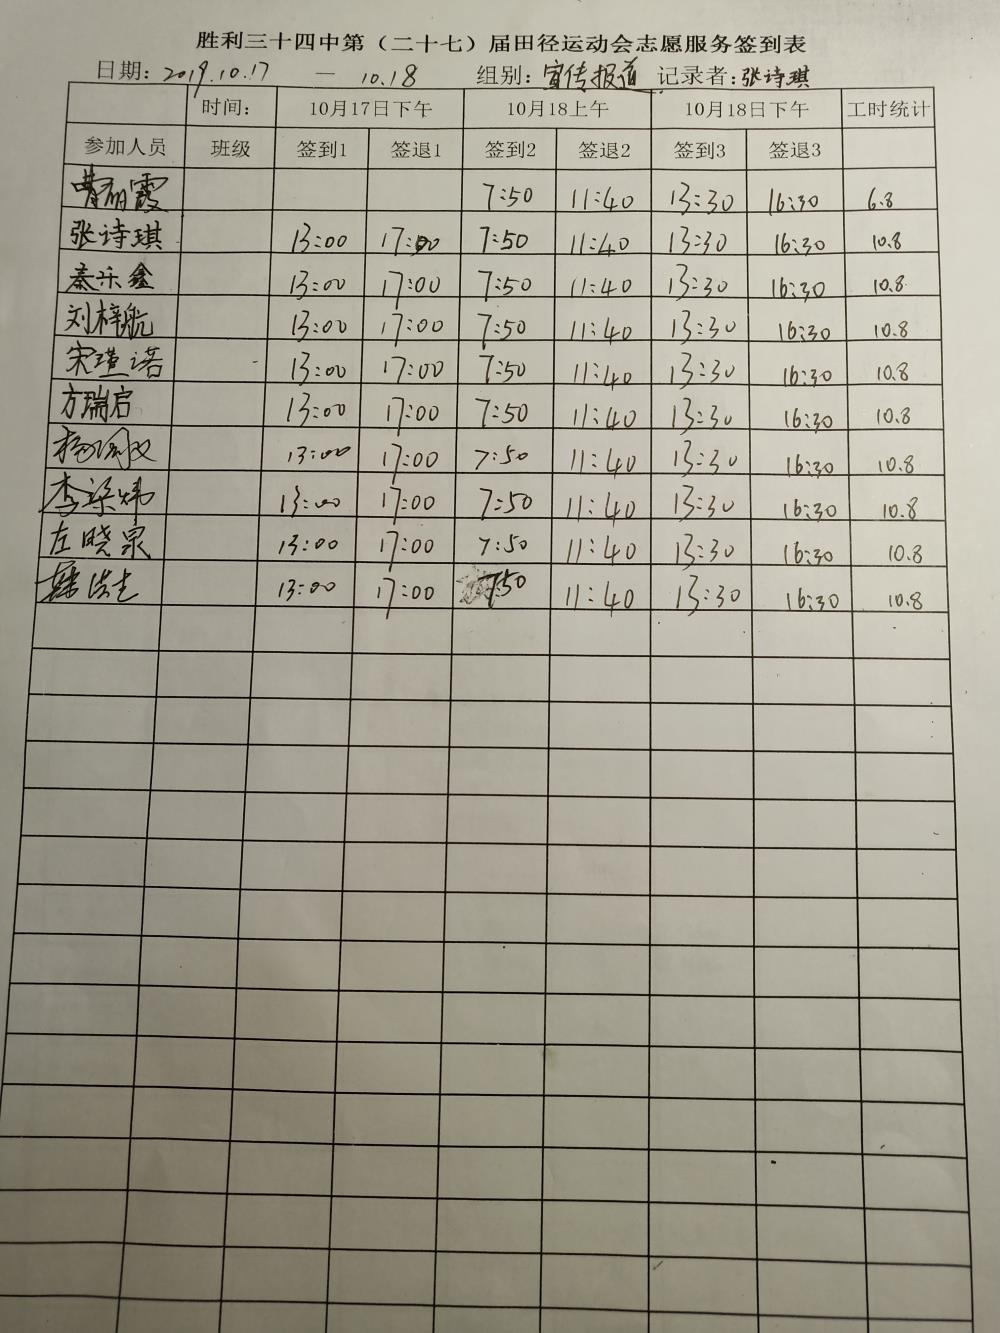 胜利三十四中第（二十七）届田径运动会志愿服务签到表
日期: 2019.10.17 — 10.18 组别: 宣传报道 记录者: 张诗琪
时间: 10月17日下午 10月18上午 10月18日下午 工时统计
参加人员 班级 签到1 签退1 签到2 签退2 签到3 签退3
霞 7:50 11:40 13:30 16:30 6.8
张诗琪 13:00 17:00 7:50 11:40 13:30 16:30 10.8
秦乐鑫 13:00 17:00 7:50 11:40 13:30 16:30 10.8
刘梓航 13:00 17:00 7:50 11:40 13:30 16:30 10.8
宋瑾诺 13:00 17:00 7:50 11:40 13:30 16:30 10.8
方瑞启 13:00 17:00 7:50 11:40 13:30 16:30 10.8
13:00 17:00 7:50 11:40 13:30 16:30 10.8
李梁炜 13:00 17:00 7:50 11:40 13:30 16:30 10.8
左晓泉 13:00 17:00 7:50 11:40 13:30 16:30 10.8
13:00 17:00 7:50 11:40 13:30 16:30 10.8